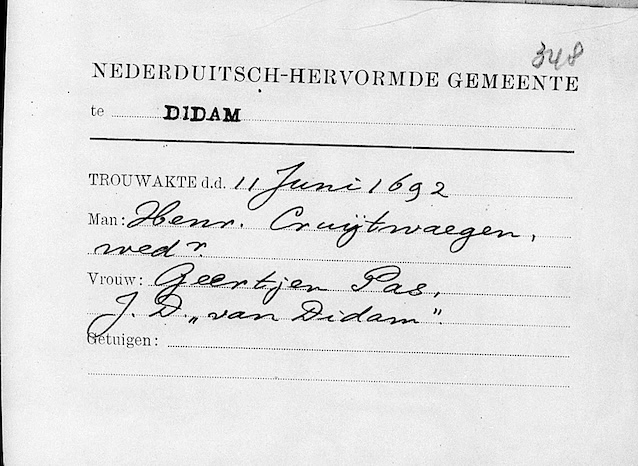 348
NEDERDUITSCH-HERVORMDE GEMEENTE
te DIDAM
TROUWAKTE d.d. 11 Juni 1692
Man: Henr. Cruijtwaegen,
wedr.
Vrouw: Geertjen Pas,
J. D. „van Didam".
Getuigen: